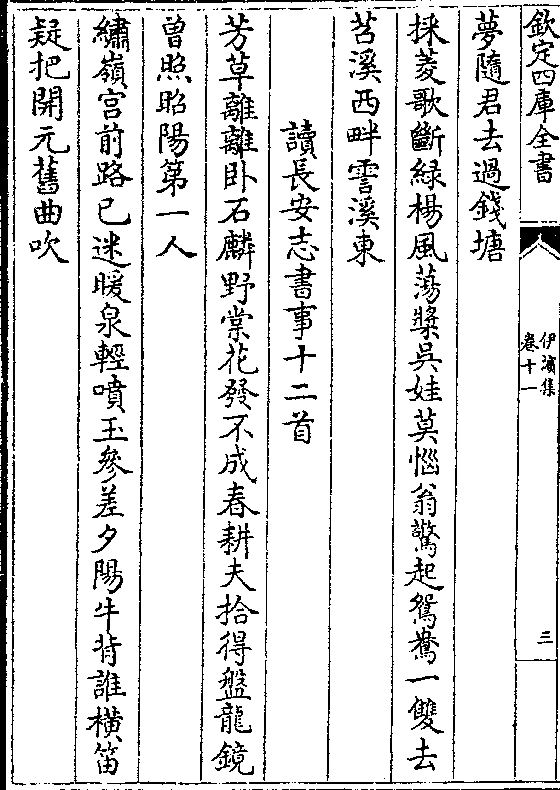 欽定四庫全書
伊濱集
卷十一
三
夢隨君去過錢塘
採菱歌斷緑楊風蕩槳吳娃莫惱翁驚起鴛鴦一雙去
苕溪西畔霅溪東
讀長安志書事十二首
芳草離離卧石麟野棠花發不成春耕夫拾得盤龍鏡
曽照昭陽第一人
繡嶺宫前路已迷暖泉輕噴玉參差夕陽牛背誰橫笛
疑把開元舊曲吹